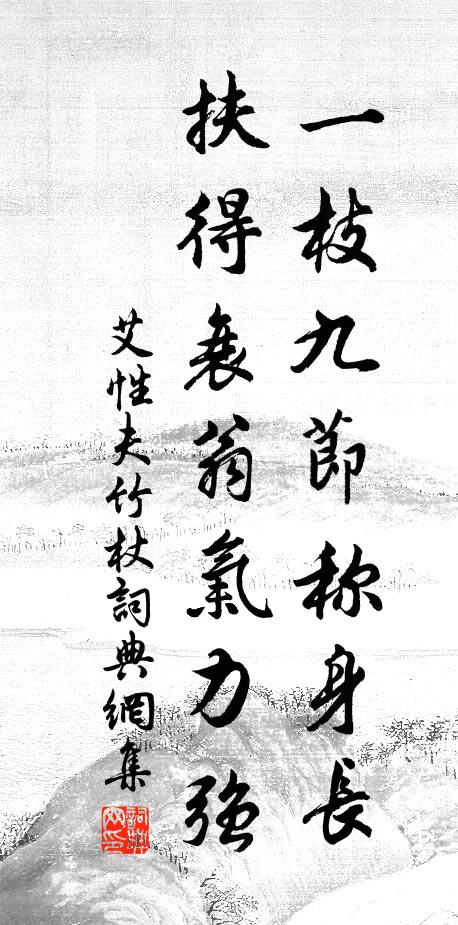 一枝九節称身長
扶得衰翁氣力強
艾性夫竹杖詞典網集